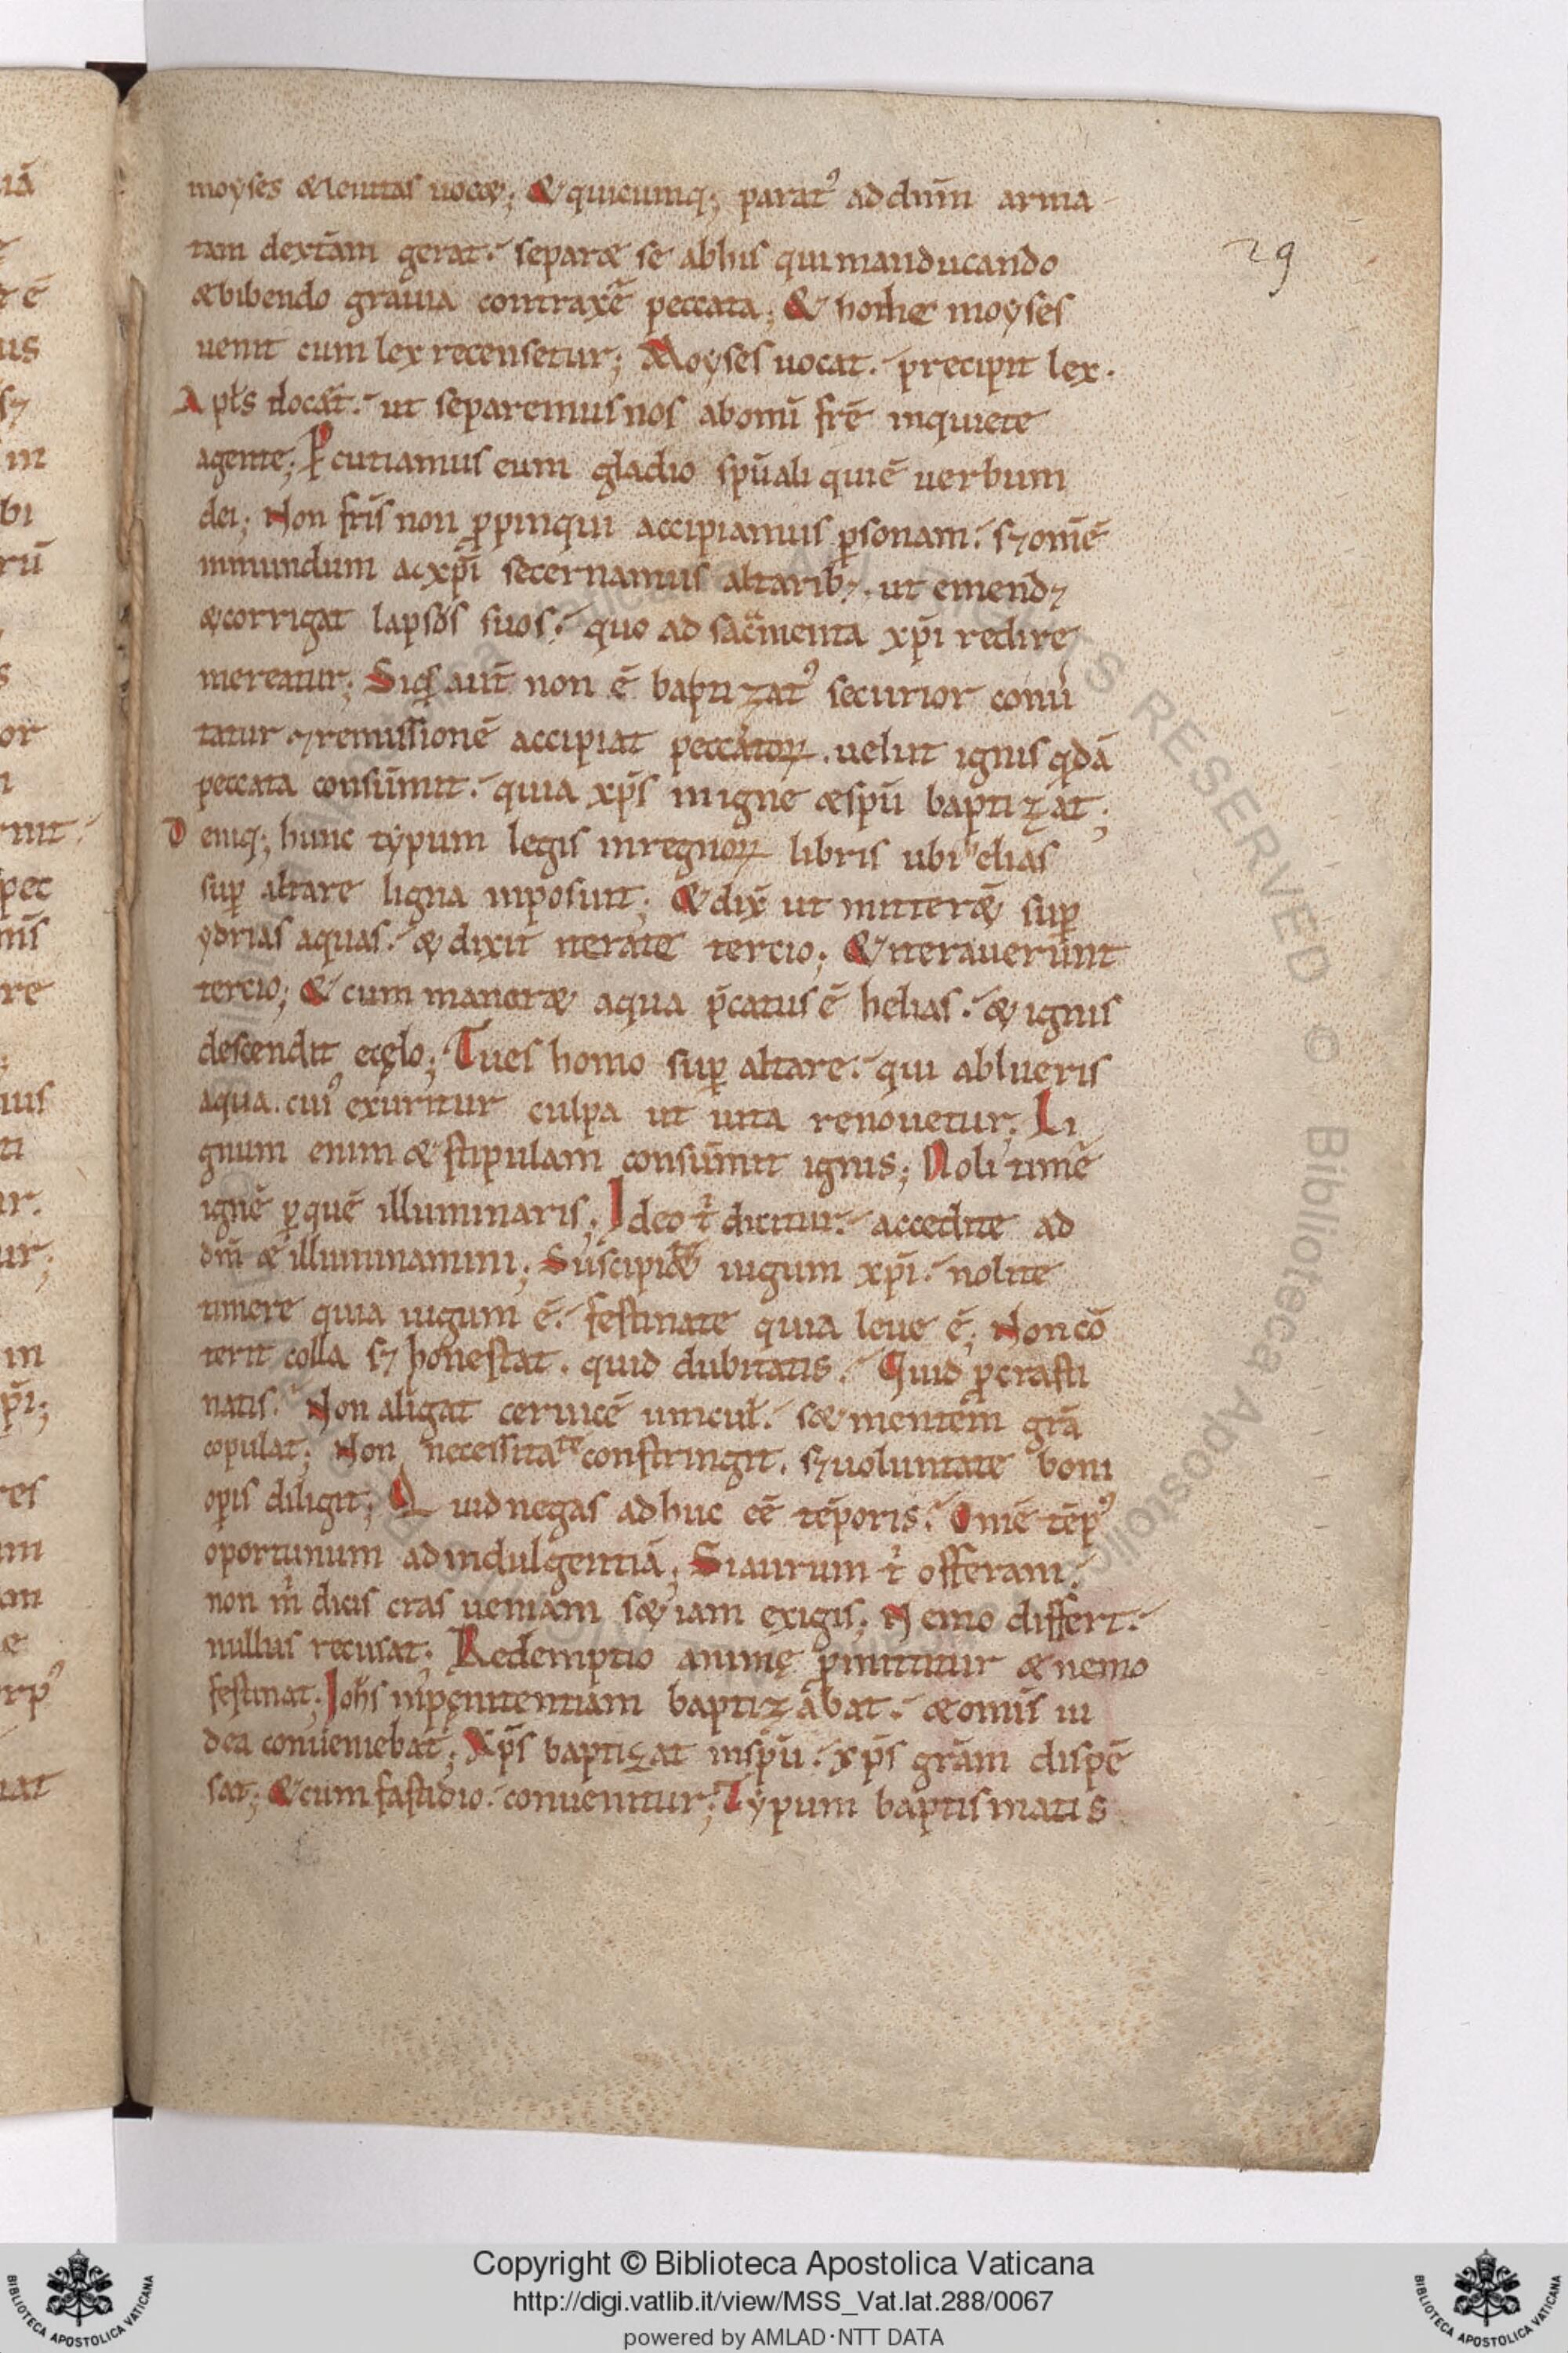 moyses & leuitas uocat; & quicumq; parat᾽ ad dnm̄ arma
tam dextām gerat. separæ se ab his qui manducando
& bibendo grauia contraxē peccata; & hodie moyses
uenit cum lex recensetur; Moyses uocat. precipit lex.
Apłs docat. ut separemus nos ab omī frē inquiete
agente; Ꝑcutiamus eum gladio spūali qui ē uerbum
dei; Non frīs non ꝓpinqui accipiamus ꝑsonam. sꝫ omē
inmundum a xpī secernamus altaribꝫ. ut emendꝫ
& corrigat lapsos suos. quo ad sacmenta xpī redire
mereatur; Siqs aut̄ non ē baptizat᾽ securior conu
tatur ⁊ remissionē accipiat peccatoꝝ. uelut ignis qdā
peccata consūmit. quia xp̄s in igne & spū baptizat;
Deniq; hunc typum legis in regnoꝝ libris ubi helias
sup̄ altare ligna inposuit; & dix̄ ut mitteræ sup̄
ydrias aquas. & dixit iterate tercio; & iterauerunt
tercio; & cum manaræ aqua p̄catus ē helias. & ignis
descendit e cęlo; Tu es homo sup̄ altare. qui ablueris
aqua. cui᾽ exuritur culpa ut uita renouetur; Li
gnum enim & stipulam consūmit ignis; Noli timē
ignē ꝑ quē illuminaris; Ideo t' dicitur. accedite ad
dm̄ & illuminamini; Suscipite iugum xpī. nolite
timere quia iugum ē. festinate quia leue ē; Non cō
terit colla sꝫ honestat. quid dubitatis. Quid ꝓcrasti
natis. Non aligat ceruicē uincuł. sed mentem grā
copulat; Non necessitate constringit. sꝫ uoluntate boni
op̄is diligit; Quid negas adhuc eē tēporis. Omē tēp᾽
oportunum ad indulgentiā; Si aurum t' offeram.
non m' dicis cras ueniam sed iam exigis; Nemo differt.
nullus recusat; Redemptio animę ꝓmittitur & nemo
festinat; Johs in pęnitentiam baptizabat. & omīs iu
dea conueniebat; Xp̄s baptizat in spū. xp̄s grām dispē
sat; & cum fastidio conuenitur; Typum baptismatis
29
Copyright © Biblioteca Apostolica Vaticana
http://digi.vatlib.it/view/MSS_Vat.lat.288/0067
powered by AMLAD·NTT DATA
BIBLIOTECA APOSTOLICA VATICANA
BIBLIOTECA APOSTOLICA VATICANA